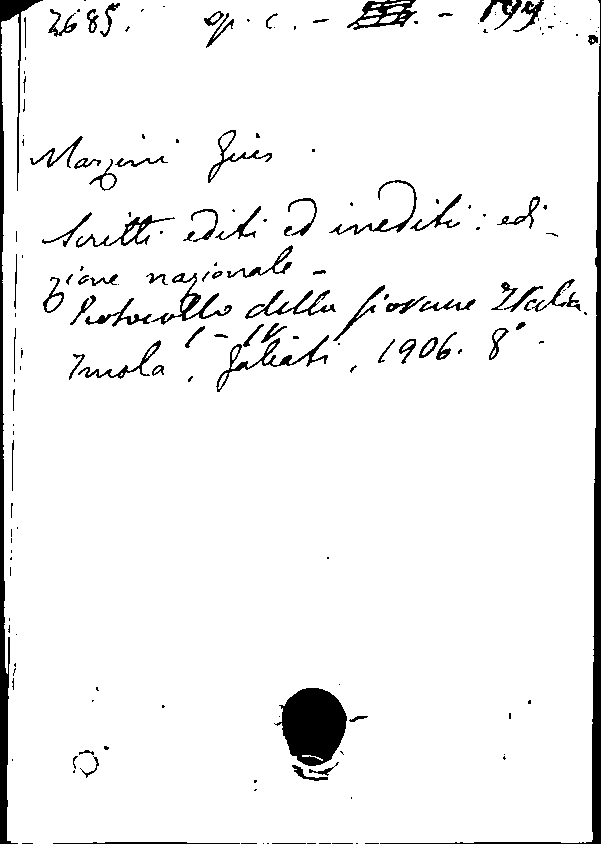 2685. op. c. - - 199
Mazzini Gius.
Scritti editi ed inediti: edi-
zione nazionale -
Protocollo della Giovane Italia.
I - IV
Imola, Galeati, 1906. 8°.